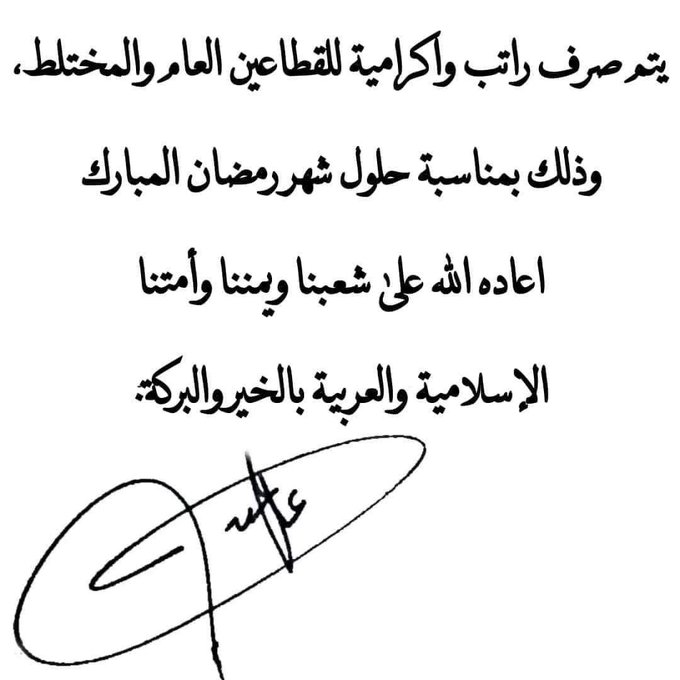 يتم صرف راتب واكرامية للقطاعين العام والمختلط،
وذلك بمناسبة حلول شهر رمضان المبارك
اعاده الله على شعبنا ويمننا وأمتنا
الإسلامية والعربية بالخير والبركة.